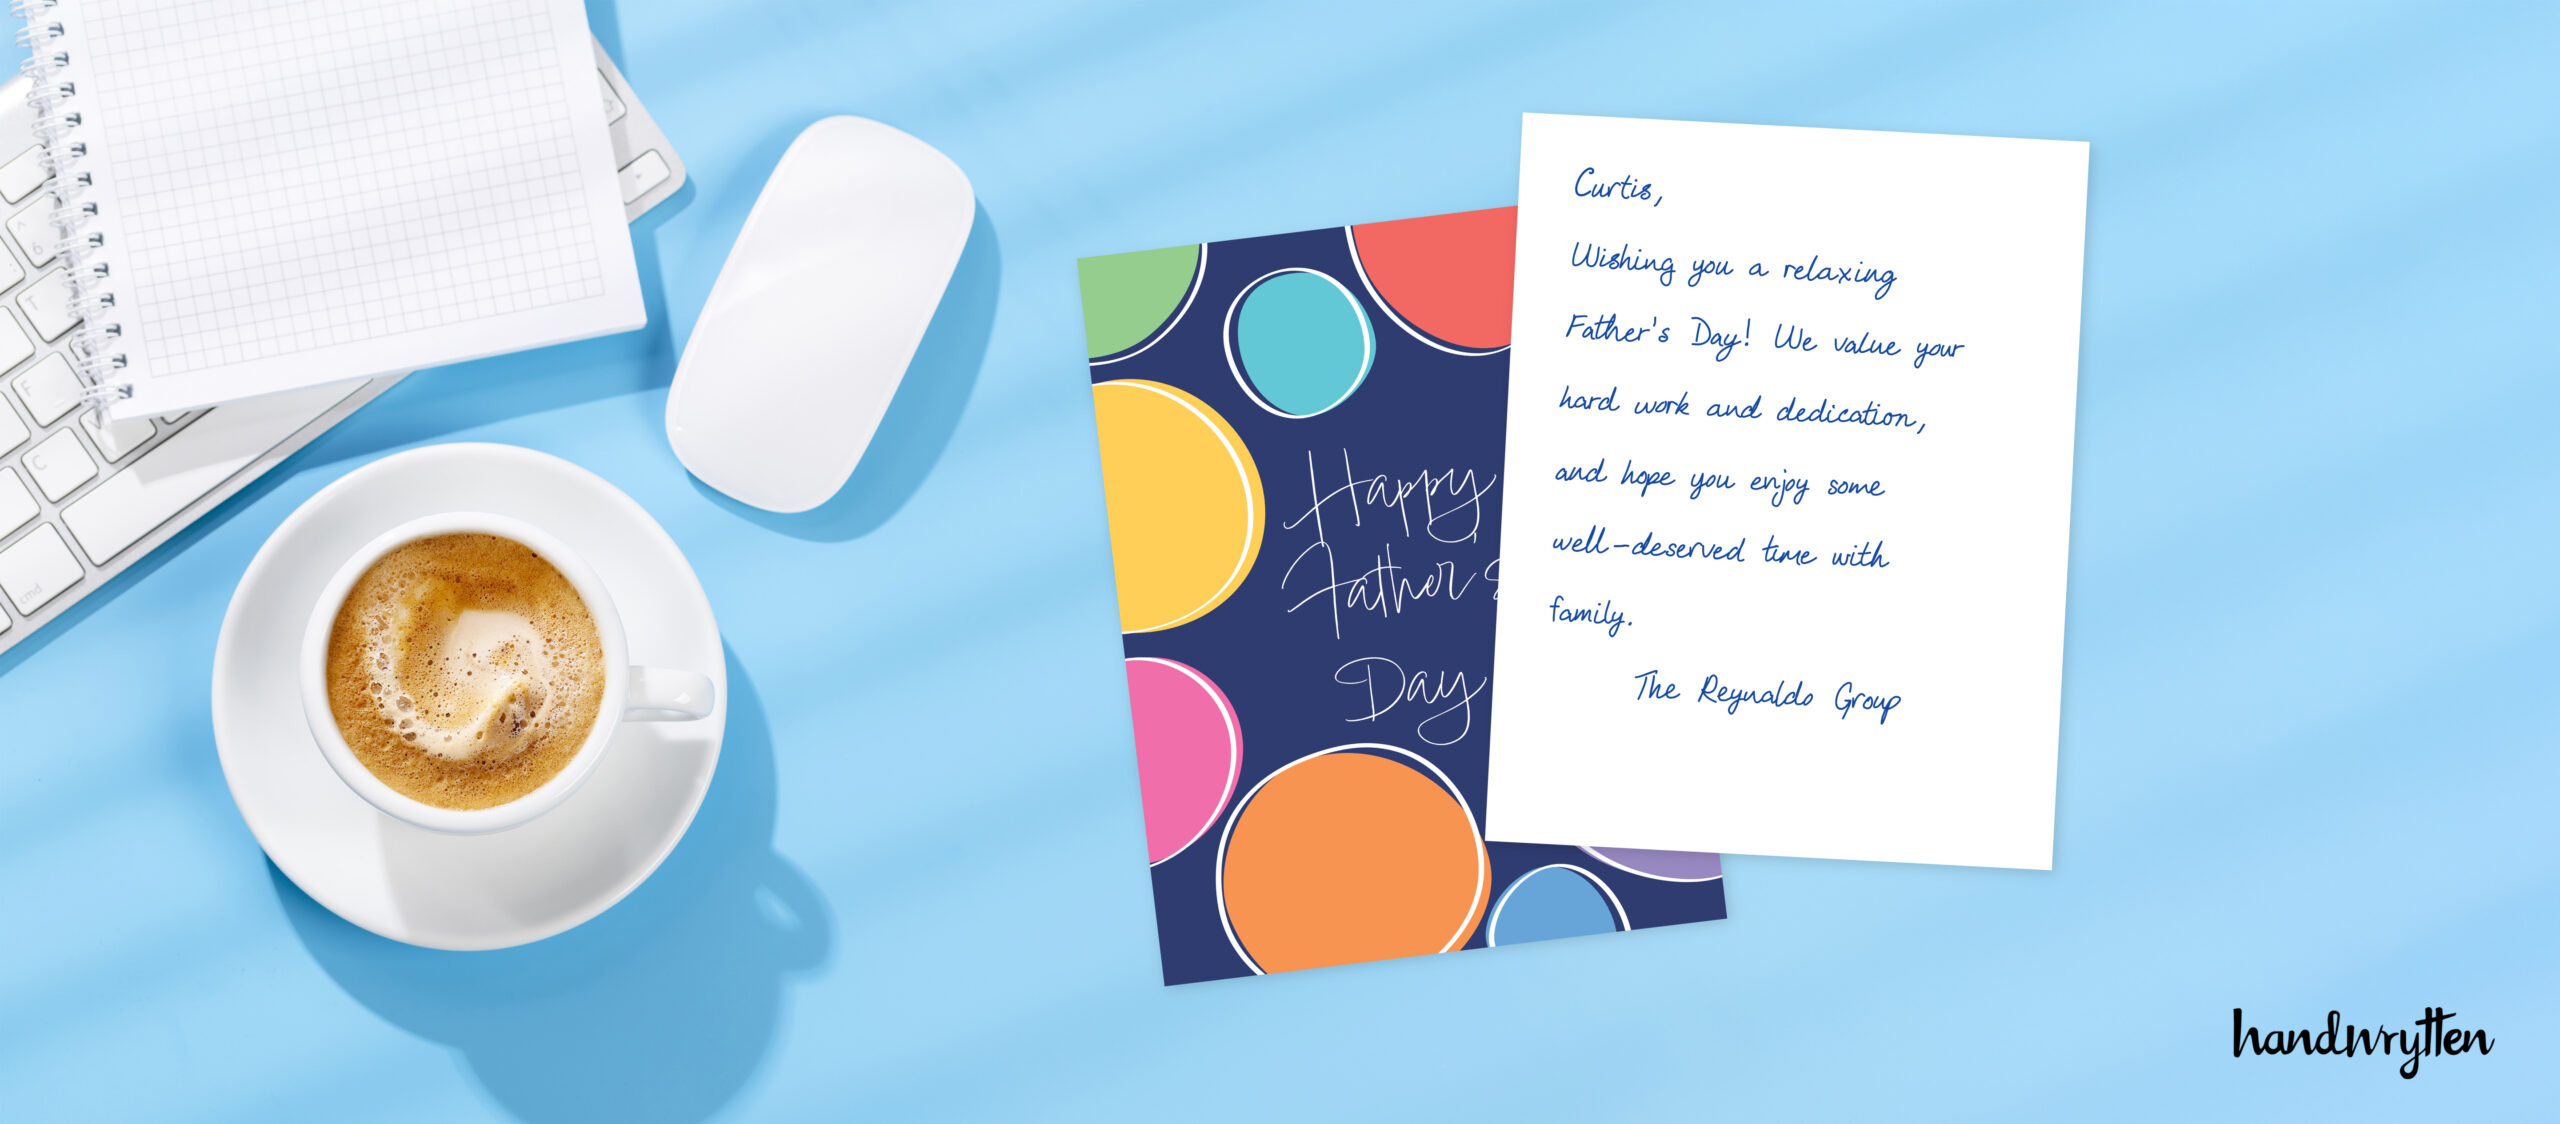 Happy
Father's
Day
Curtis,
Wishing you a relaxing
Father's Day! We value your
hard work and dedication,
and hope you enjoy some
well-deserved time with
family.
The Reynaldo Group
handwrytten
6
T
F
C
V
cmd